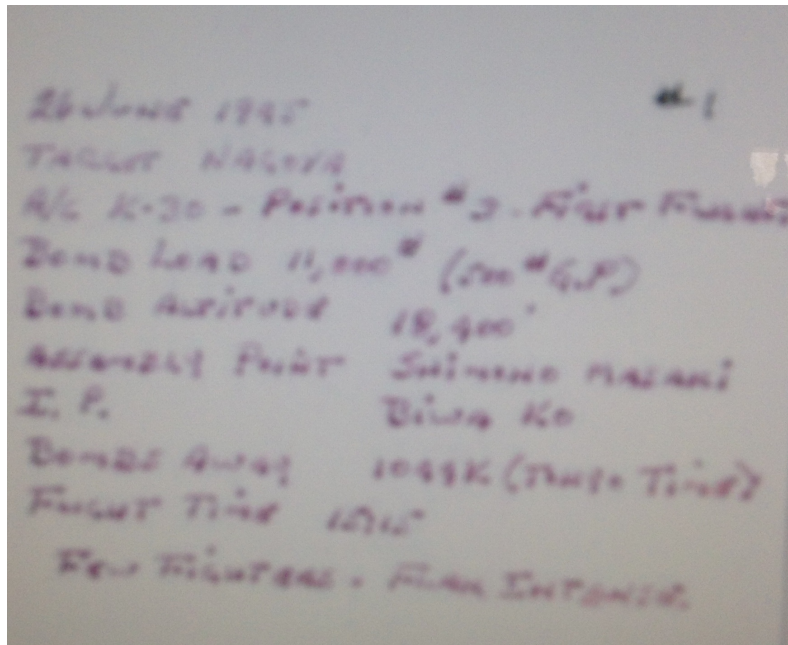 #1
26 JUNE 1945
TARGET NAGOYA
A/C K-30 - POSITION #3 - FIRST FLIGHT
BOMB LOAD 11,000# (500# G.P)
BOMB ALTITUDE 18,400'
ASSEMBLY POINT SHIMONO MASAKI
I. P. BIWA KO
BOMBS AWAY 1044K (TOKYO TIME)
FLIGHT TIME 15:15
FEW FIGHTERS. FLAK INTENSE.